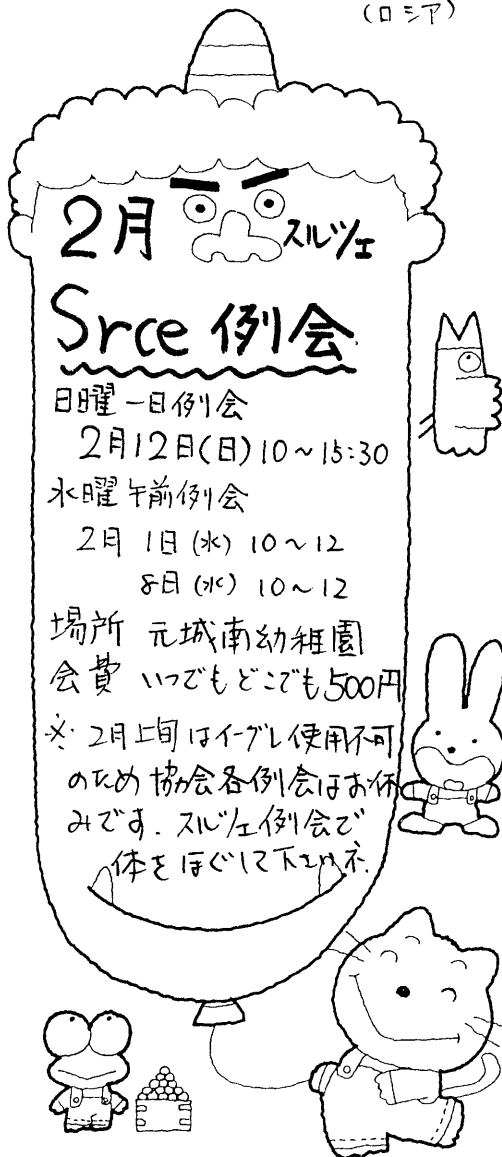 (ロシア)
2月 スルツェ
Srce 例会
日曜一日例会
2月12日(日)10~15:30
水曜午前例会
2月 1日(水) 10~12
8日(水) 10~12
場所 元城南幼稚園
会費 いつでもどこでも500円
※ 2月上旬はイーグレ使用不可
のため協会各例会はお休
みです. スルツェ例会で
体をほぐして下さいネ.